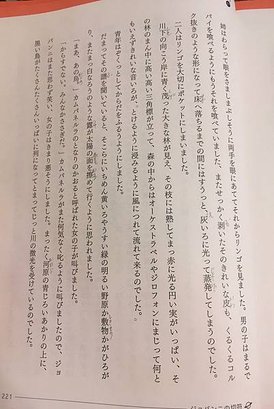 姉はわらって眼をさましまぶしそうに両手を眼にあててそれからリンゴを見ました。男の子はまるで
パイを喰べるようにもうそれを喰べていました。またせっかく剥いたそのきれいな皮も、くるくるコル
ク抜きのような形になって床へ落ちるまでの間にはすうっと、灰いろに光って蒸発してしまうのでした。
二人はリンゴを大切にポケットにしまいました。
川下の向こう岸に青く茂った大きな林が見え、その枝には熟してまっ赤に光る円い実がいっぱい、そ
の林のまん中に高い高い三角標が立って、森の中からはオーケストラベルやジロフォンにまじって何と
もいえずきれいな音いろが、とけるように浸みるように風につれて流れて来るのでした。
青年はぞくっとしてからだをふるうようにしました。
だまってその譜を聞いていると、そこらにいちめん黄いろやうすい緑の明るい野原か敷物かがひろが
り、またまっ白なろうのような露が太陽の面を擦めて行くように思われました。
「まあ、あの烏。」カムパネルラのとなりのかおると呼ばれた女の子が叫びました。
「からすでない。みんなかささぎだ。」カムパネルラがまた何気なく叱るように叫びましたので、ジョ
バンニはまた思わず笑い、女の子はきまり悪そうにしました。まったく河原の青じろいあかりの上に、
黒い鳥がたくさんたくさんいっぱいに列になってとまってじっと川の微光を受けているのでした。
221